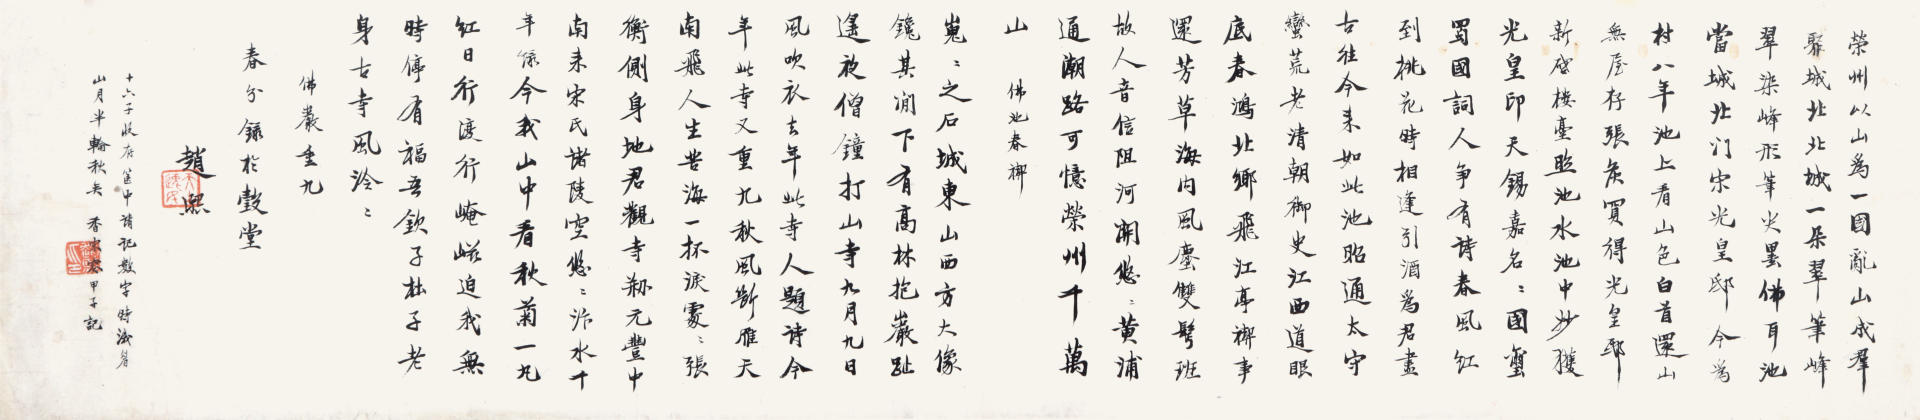 榮州以山爲一國亂山成羣
聚城北北城一朵翠筆峰
翠染峰形筆尖曇佛耳池
當城北门宋光皇邸今爲
村八年池上看山色白首還山
無屋存張矦買得光皇邸
新啓樓臺照池水池中沙獲
光皇印天錫嘉名ミ國璽
蜀國詞人争有詩春風紅
到桃花時相逢引酒爲君畫
古往今来如此池昭通太守
蠻荒老清朝御史江西道眼
底春鴻北鄉飛江亭禊事
還芳草海内風塵雙鬢班
故人音信阻河關悠ミ黄浦
通潮路可憶榮州千萬
山　佛池春禊
嵬ミ之石城東山西方大像
鑱其澗下有高林抱巖趾
遥夜僧鐘打山寺九月九日
風吹衣去年此寺人題诗今
年此寺又重九秋風斷雁天
南飛人生苦海一杯淚處ミ張
衡側身地君觀寺剏元豐中
南来宋氏诸陵空悠ミ汴水千
年緑今我山中看秋菊一九
红日行渡行崦嵫迫我無
時停有福吾欽子杜子老
身古寺風泠ミ
佛巖重九
春分録於馥堂
趙熙
十六子收存篋中请記數字時
山月半輪秋矣　香宋甲子記